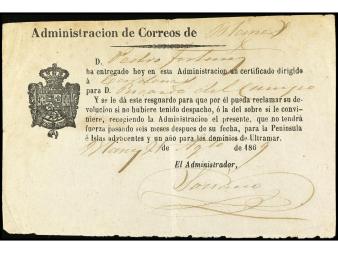 Administracion de Correos de Blanes
D. Pedro
ha entregado hoy en esta Administracion un certificado dirigido
á Barcelona
para D. Ricardo del Campo
Y se le dá este resguardo para que por él pueda reclamar su de-
volucion si no hubiere tenido despacho, ó la del sobre si le convi-
niere, recogiendo la Administracion el presente, que no tendrá
fuerza pasando seis meses despues de su fecha, para la Península
é Islas adyacentes y un año para los dominios de Ultramar.
Blanes de Agto de 1869
El Administrador,